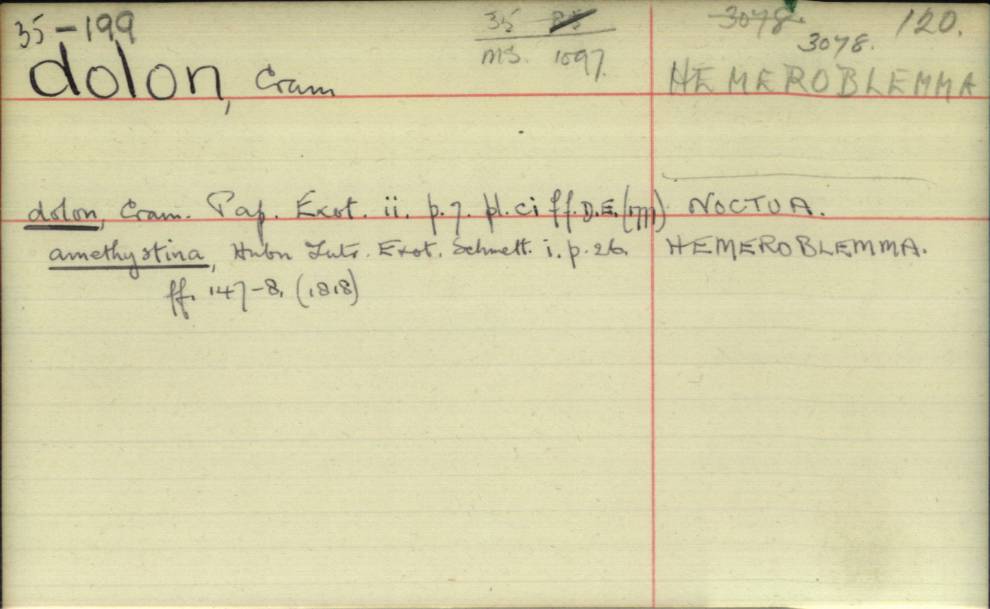 35-199
35
MS. 1097.
3078.
3078.
120.
dolon, Cram
HEMEROBLEMMA
dolon, Cram. Pap. Exot. ii. p. 7. pl. ci ff. D.E. (1777) NOCTUA.
amethystina, Hubn Zutr. Exot. Schmett. i. p. 26. HEMEROBLEMMA.
ff. 147-8, (1818)